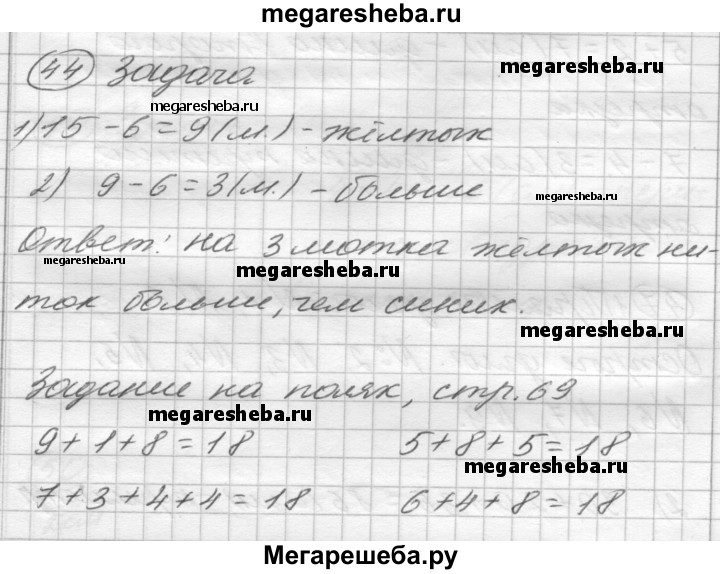 megaresheba.ru
44 Задача
megaresheba.ru
megaresheba.ru
1) 15 - 6 = 9 (м.) - жёлтых
2) 9 - 6 = 3 (м.) - больше
megaresheba.ru
Ответ: на 3 мотка жёлтых ни-
megaresheba.ru
megaresheba.ru
ток больше, чем синих.
megaresheba.ru
Задание на полях, стр. 69
megaresheba.ru
9 + 1 + 8 = 18 5 + 8 + 5 = 18
megaresheba.ru
7 + 3 + 4 + 4 = 18 6 + 4 + 8 = 18
Мегарешеба.ру